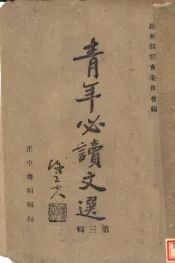 教育部訓育委員會編
青年必讀文選
第三輯
正中書局印行